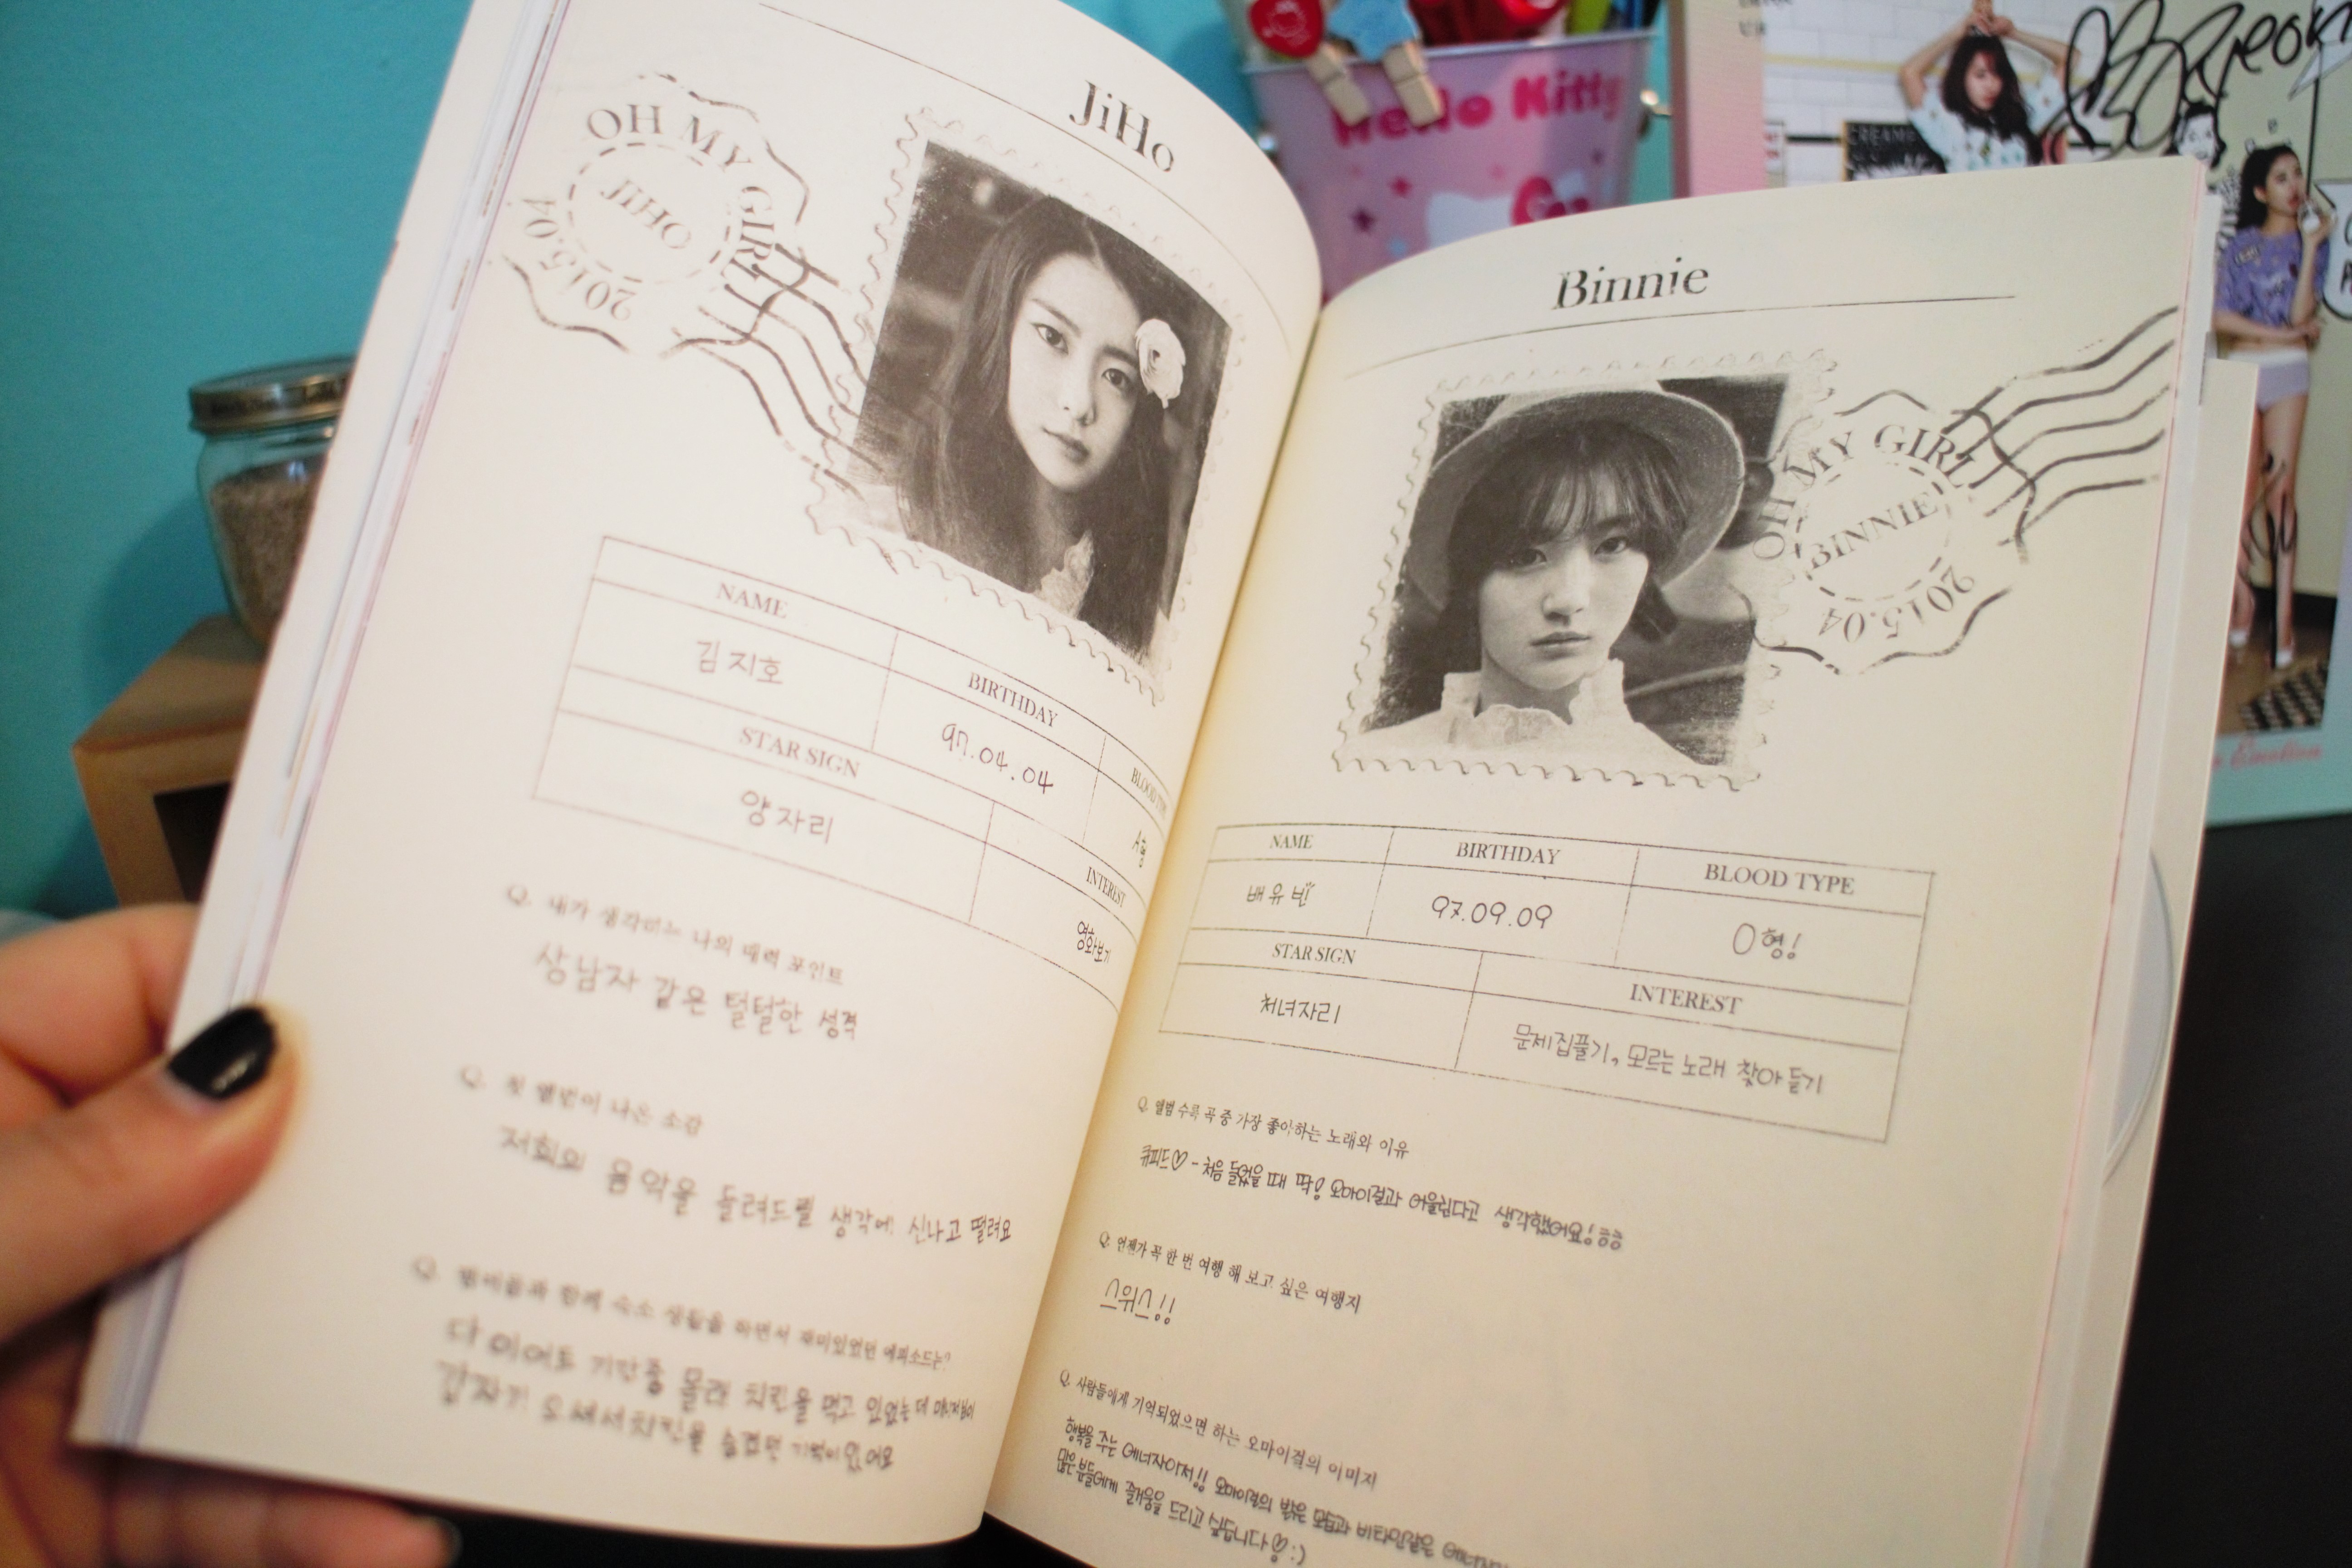 JiHo
OH MY GIRL
JIHO
2015.04
NAME
BIRTHDAY
BLOOD TYPE
김지호
97.04.04
A형
STAR SIGN
INTEREST
양자리
영화보기
Q. 내가 생각하는 나의 매력 포인트
상남자 같은 털털한 성격
Q. 첫 앨범이 나온 소감
저희의 음악을 들려드릴 생각에 신나고 떨려요
Q. 멤버들과 함께 숙소 생활을 하면서 재미있었던 에피소드는?
다이어트 기간중 몰래 치킨을 먹고 있었는데 매니저님이
갑자기 오셔서 치킨을 숨겼던 기억이 있어요
Binnie
OH MY GIRL
BINNIE
2015.04
NAME
BIRTHDAY
BLOOD TYPE
배유빈
97.09.09
O형!
STAR SIGN
INTEREST
처녀자리
문제집풀기, 모르는 노래 찾아 듣기
Q. 앨범 수록 곡 중 가장 좋아하는 노래와 이유
큐피드♡ - 처음 들었을 때 딱! 오마이걸과 어울린다고 생각했어요! ㅎㅎ
Q. 언젠가 꼭 한 번 여행 해 보고 싶은 여행지
스위스!!
Q. 사람들에게 기억되었으면 하는 오마이걸의 이미지
행복을 주는 에너자이저!! 오마이걸의 밝은 모습과 비타민같은
많은분들에게 즐거움을 드리고 싶습니다♡:)
Hello Kitty
CREAM